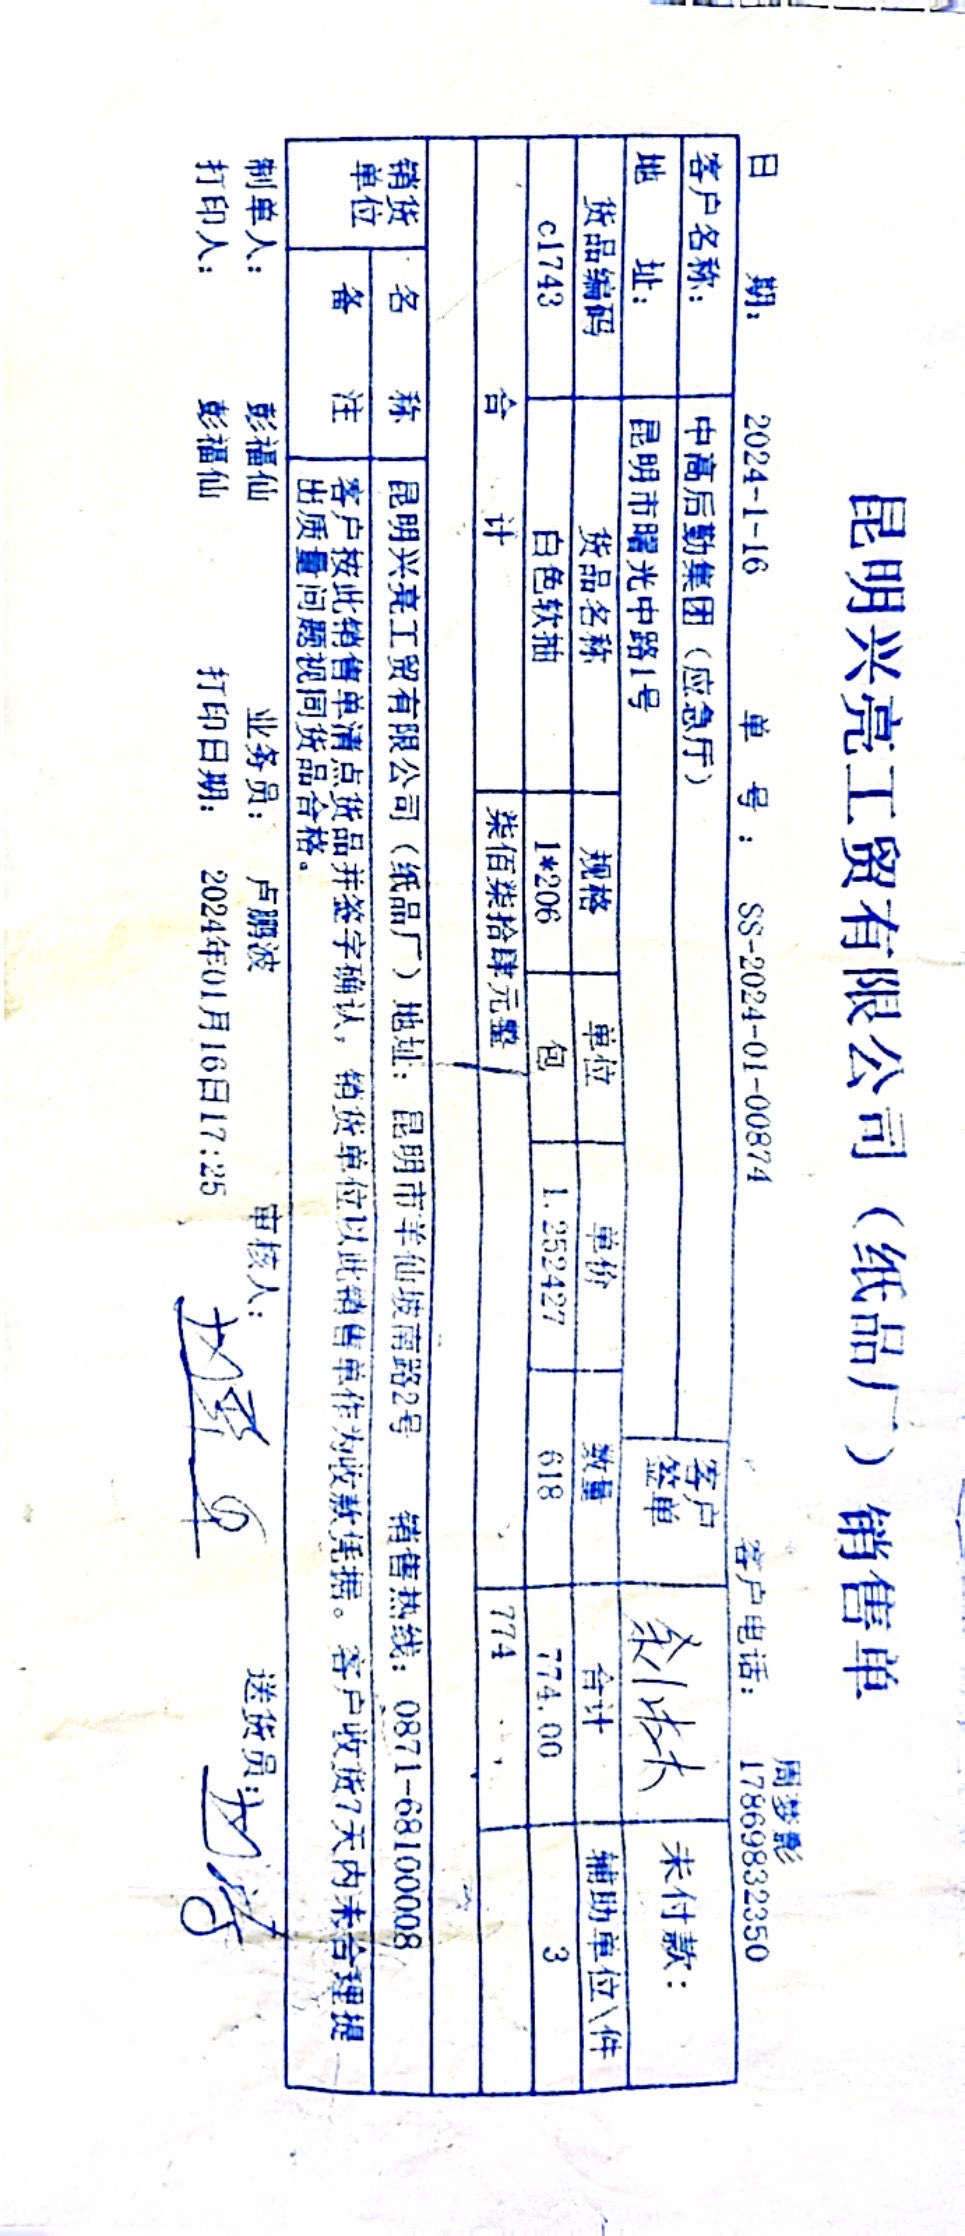 昆明兴亮工贸有限公司（纸品厂）销售单
周梦影
日 期： 2024-1-16 单 号： SS-2024-01-00874 客户电话： 17869832350
客户名称： 中高后勤集团（应急厅） 客户签单 未付款：
地 址： 昆明市曙光中路1号
货品编码 货品名称 规格 单位 单价 数量 合计 辅助单位\件
c1743 白色软抽 1*206 包 1.252427 618 774.00 3
合 计 柒佰柒拾肆元整 774
销货单位 名 称 昆明兴亮工贸有限公司（纸品厂）地址： 昆明市羊仙坡南路2号 销售热线：0871-68100008
备 注 客户按此销售单清点货品并签字确认，销货单位以此销售单作为收款凭据。客户收货7天内未合理提
出质量问题视同货品合格。
制单人： 彭福仙 业务员： 卢鹏波 审核人： 送货员：
打印人： 彭福仙 打印日期： 2024年01月16日17:25